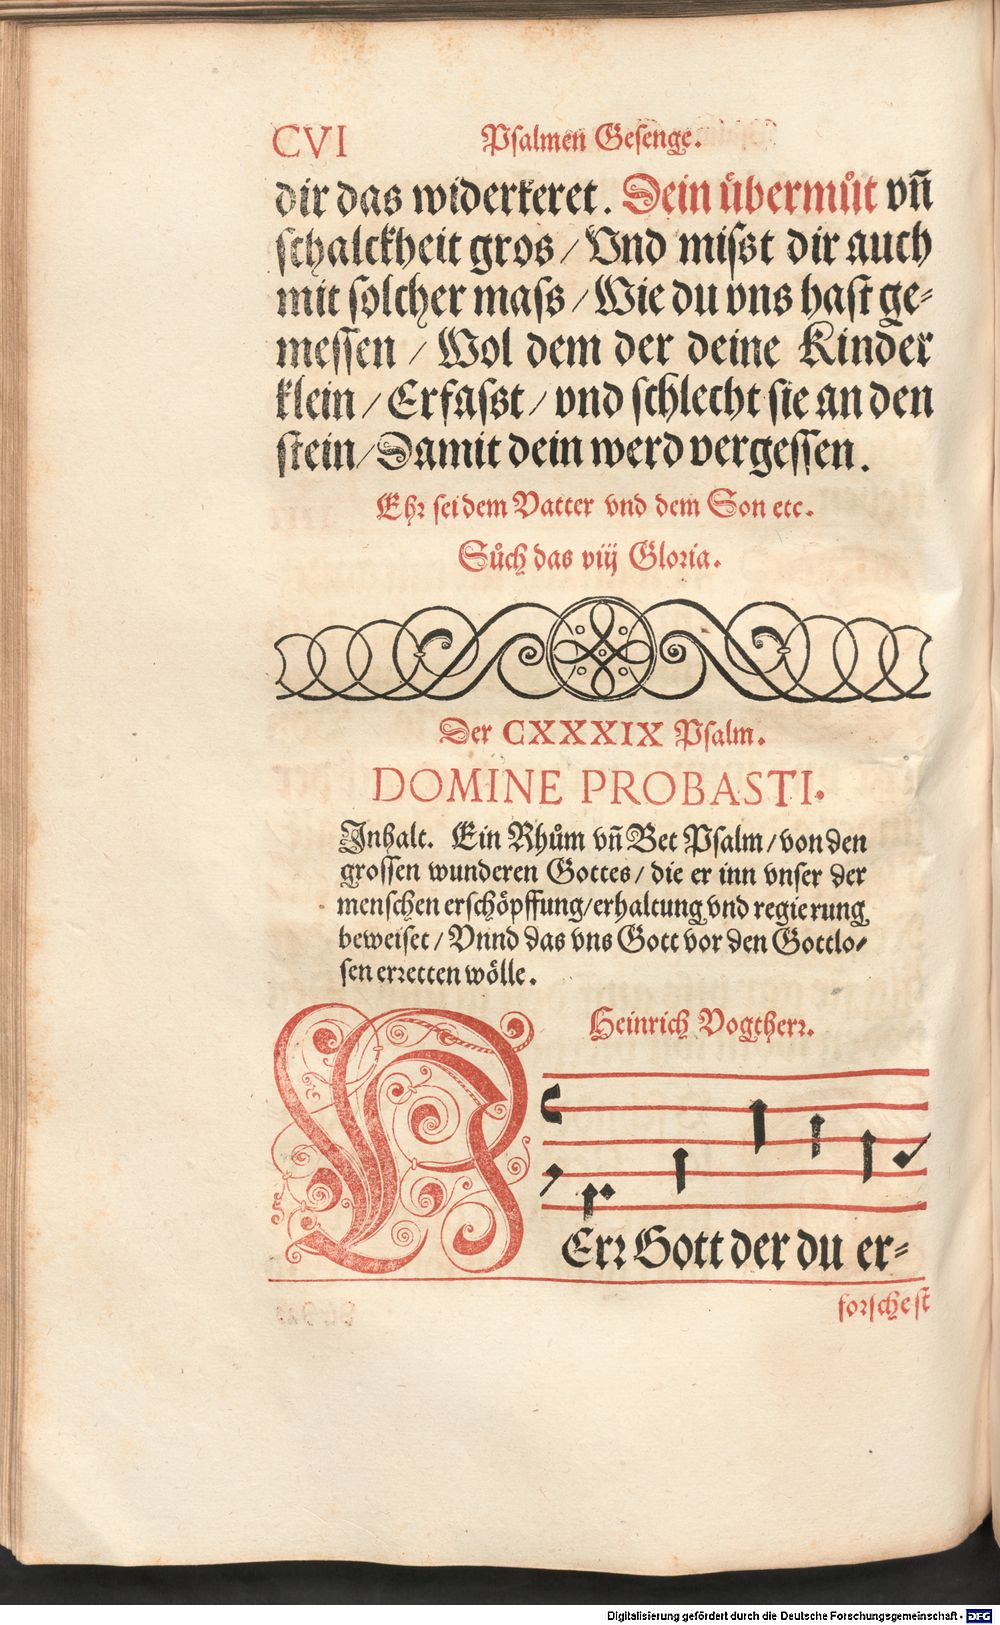 CVI Psalmen Gesenge.
dir das widerkeret. Dein uͤbermuͦt vn̄
schalckheit gros / Vnd misst dir auch
mit solcher mass / Wie du vns hast ge⸗
messen / Wol dem der deine Kinder
klein / Erfasst / vnd schlecht sie an den
stein / Damit dein werd vergessen.
Ehr sei dem Vatter vnd dem Son etc.
Suͦch das viij Gloria.
Der CXXXIX Psalm.
DOMINE PROBASTI.
Inhalt. Ein Rhuͦm vn̄ Bet Psalm / von den
grossen wunderen Gottes / die er inn vnser der
menschen erschoͤpffung / erhaltung vnd regierung
beweiset / Vnnd das vns Gott vor den Gottlo⸗
sen erretten woͤlle.
Heinrich Vogtherr.
HErr Gott der du er⸗
forschest
Digitalisierung gefördert durch die Deutsche Forschungsgemeinschaft - DFG